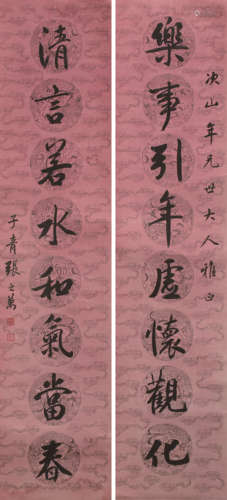 次山年兄世大人雅正
樂事引年虛懷觀化
清言若水和氣當春
子青張之萬